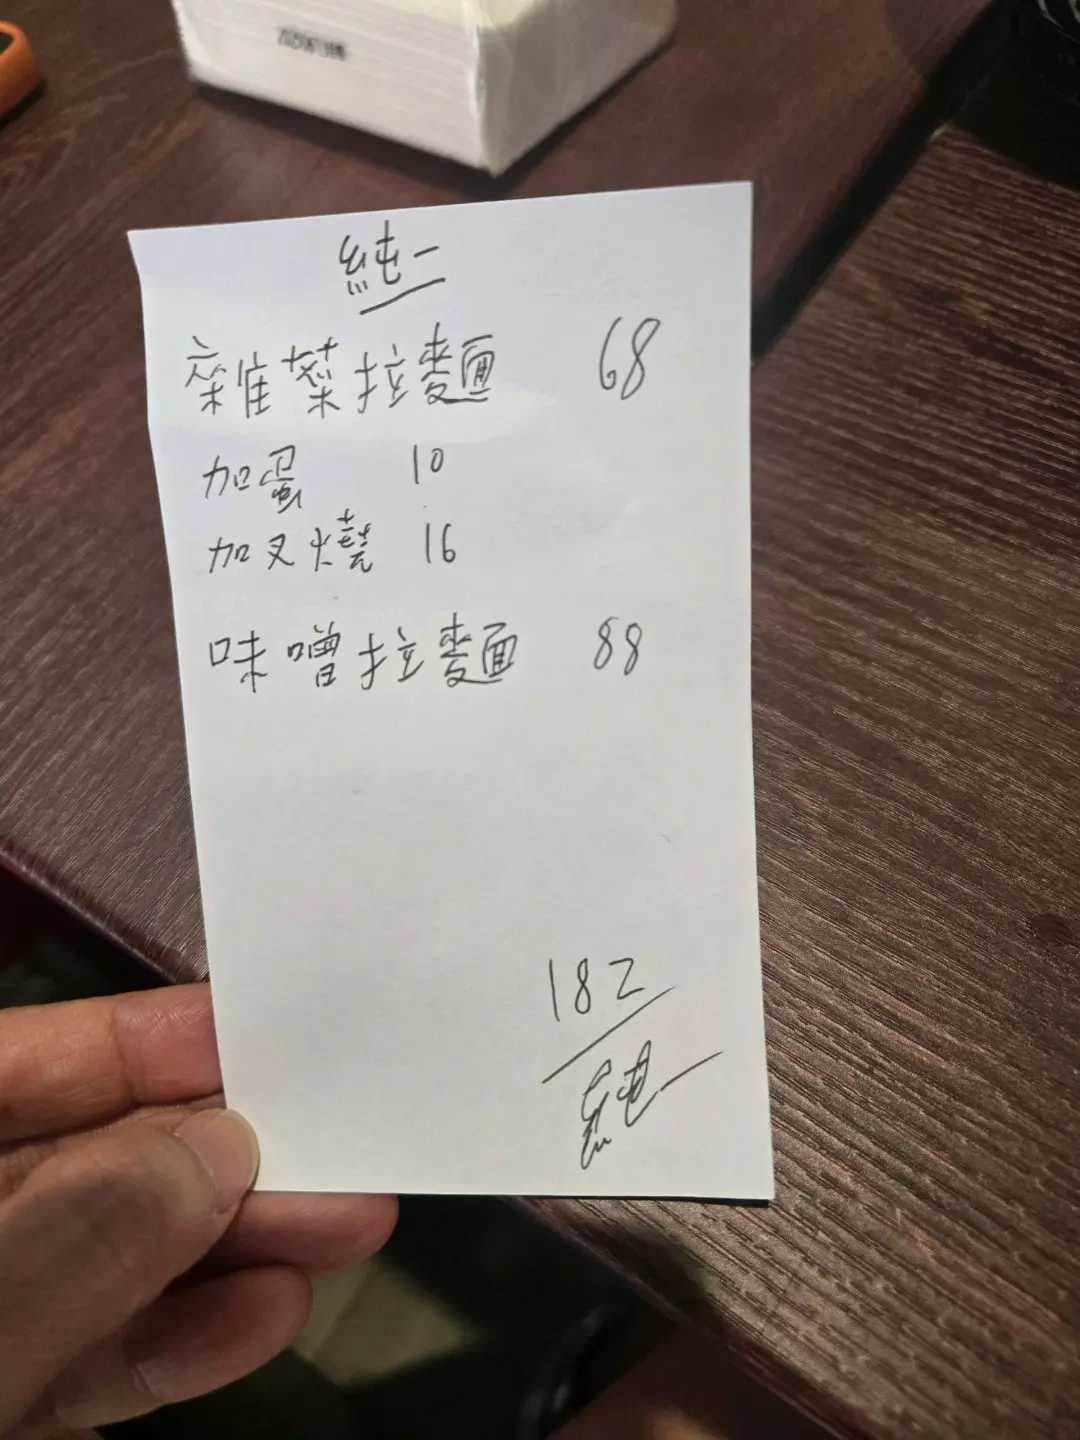 純一
雜菜拉麵 68
加蛋 10
加叉燒 16
味噌拉麵 88
182
純一